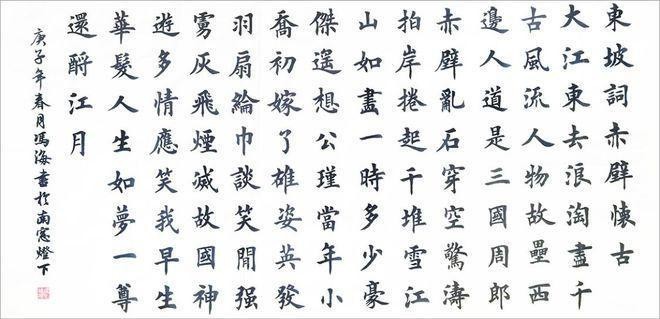 東坡詞赤壁懷古
大江東去浪淘盡千
古風流人物故壘西
邊人道是三國周郎
赤壁亂石穿空驚濤
拍岸捲起千堆雪江
山如畫一時多少豪
傑遙想公瑾當年小
喬初嫁了雄姿英發
羽扇綸巾談笑間强
虜灰飛煙滅故國神
遊多情應笑我早生
華髮人生如夢一尊
還酹江月
庚子年春月馮海書於南窓燈下